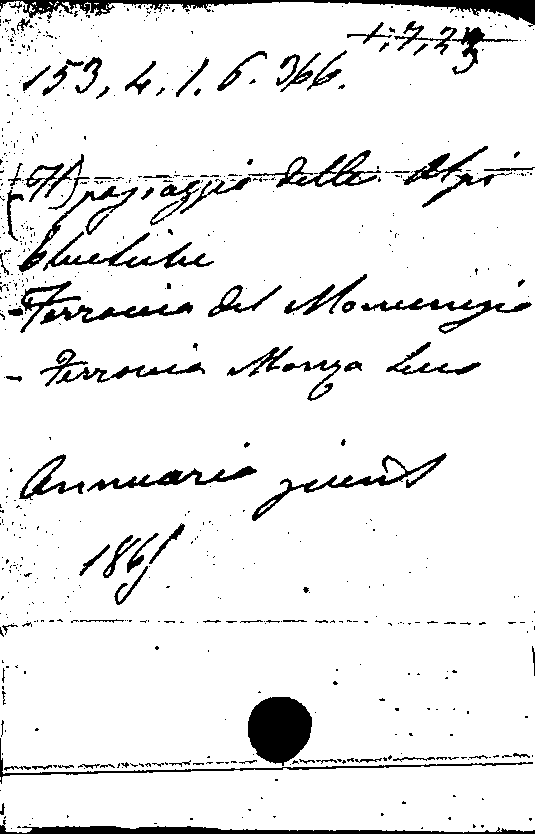 1.7.23
153.4.1.6.366.
(- Il) passaggio delle Alpi
Elvetiche
- Ferrovia del Moncenisio
- Ferrovia Monza Lecco
Annuario scient
1865